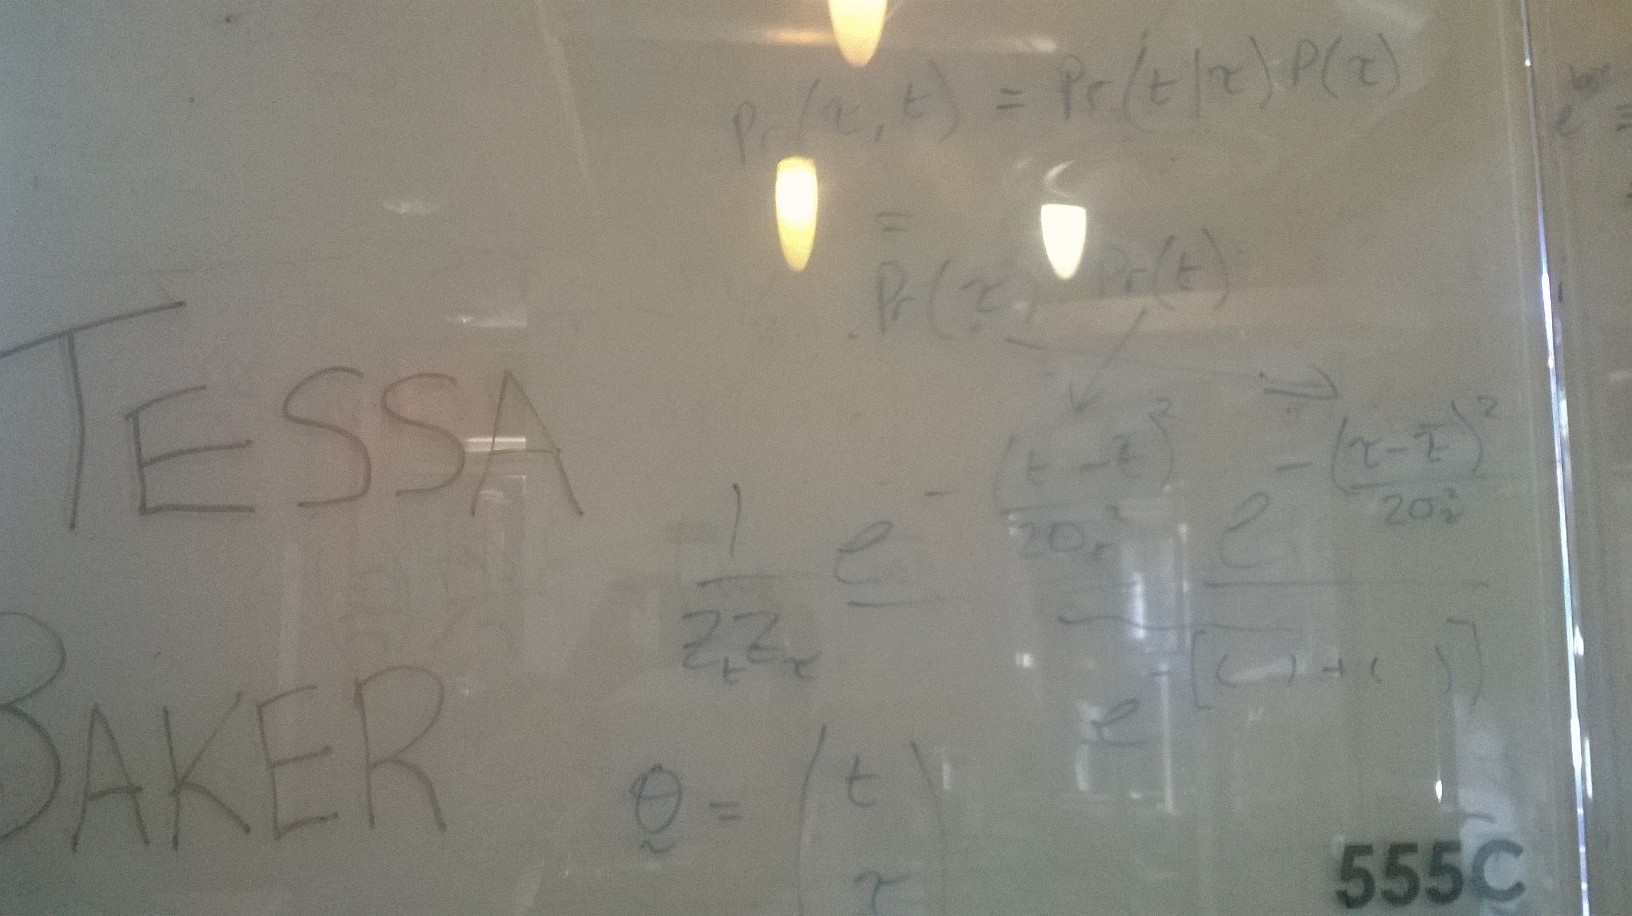 TESSA
BAKER
Pr(x, t) = Pr(t|x) P(x)
=
Pr(x) Pr(t)
1 / Z_t Z_x e^{-(t - t̄)² / 2σ_t²} e^{-(x - x̄)² / 2σ_x²}
e^{-[( ) + ( )]}
θ = ( t
x
555C